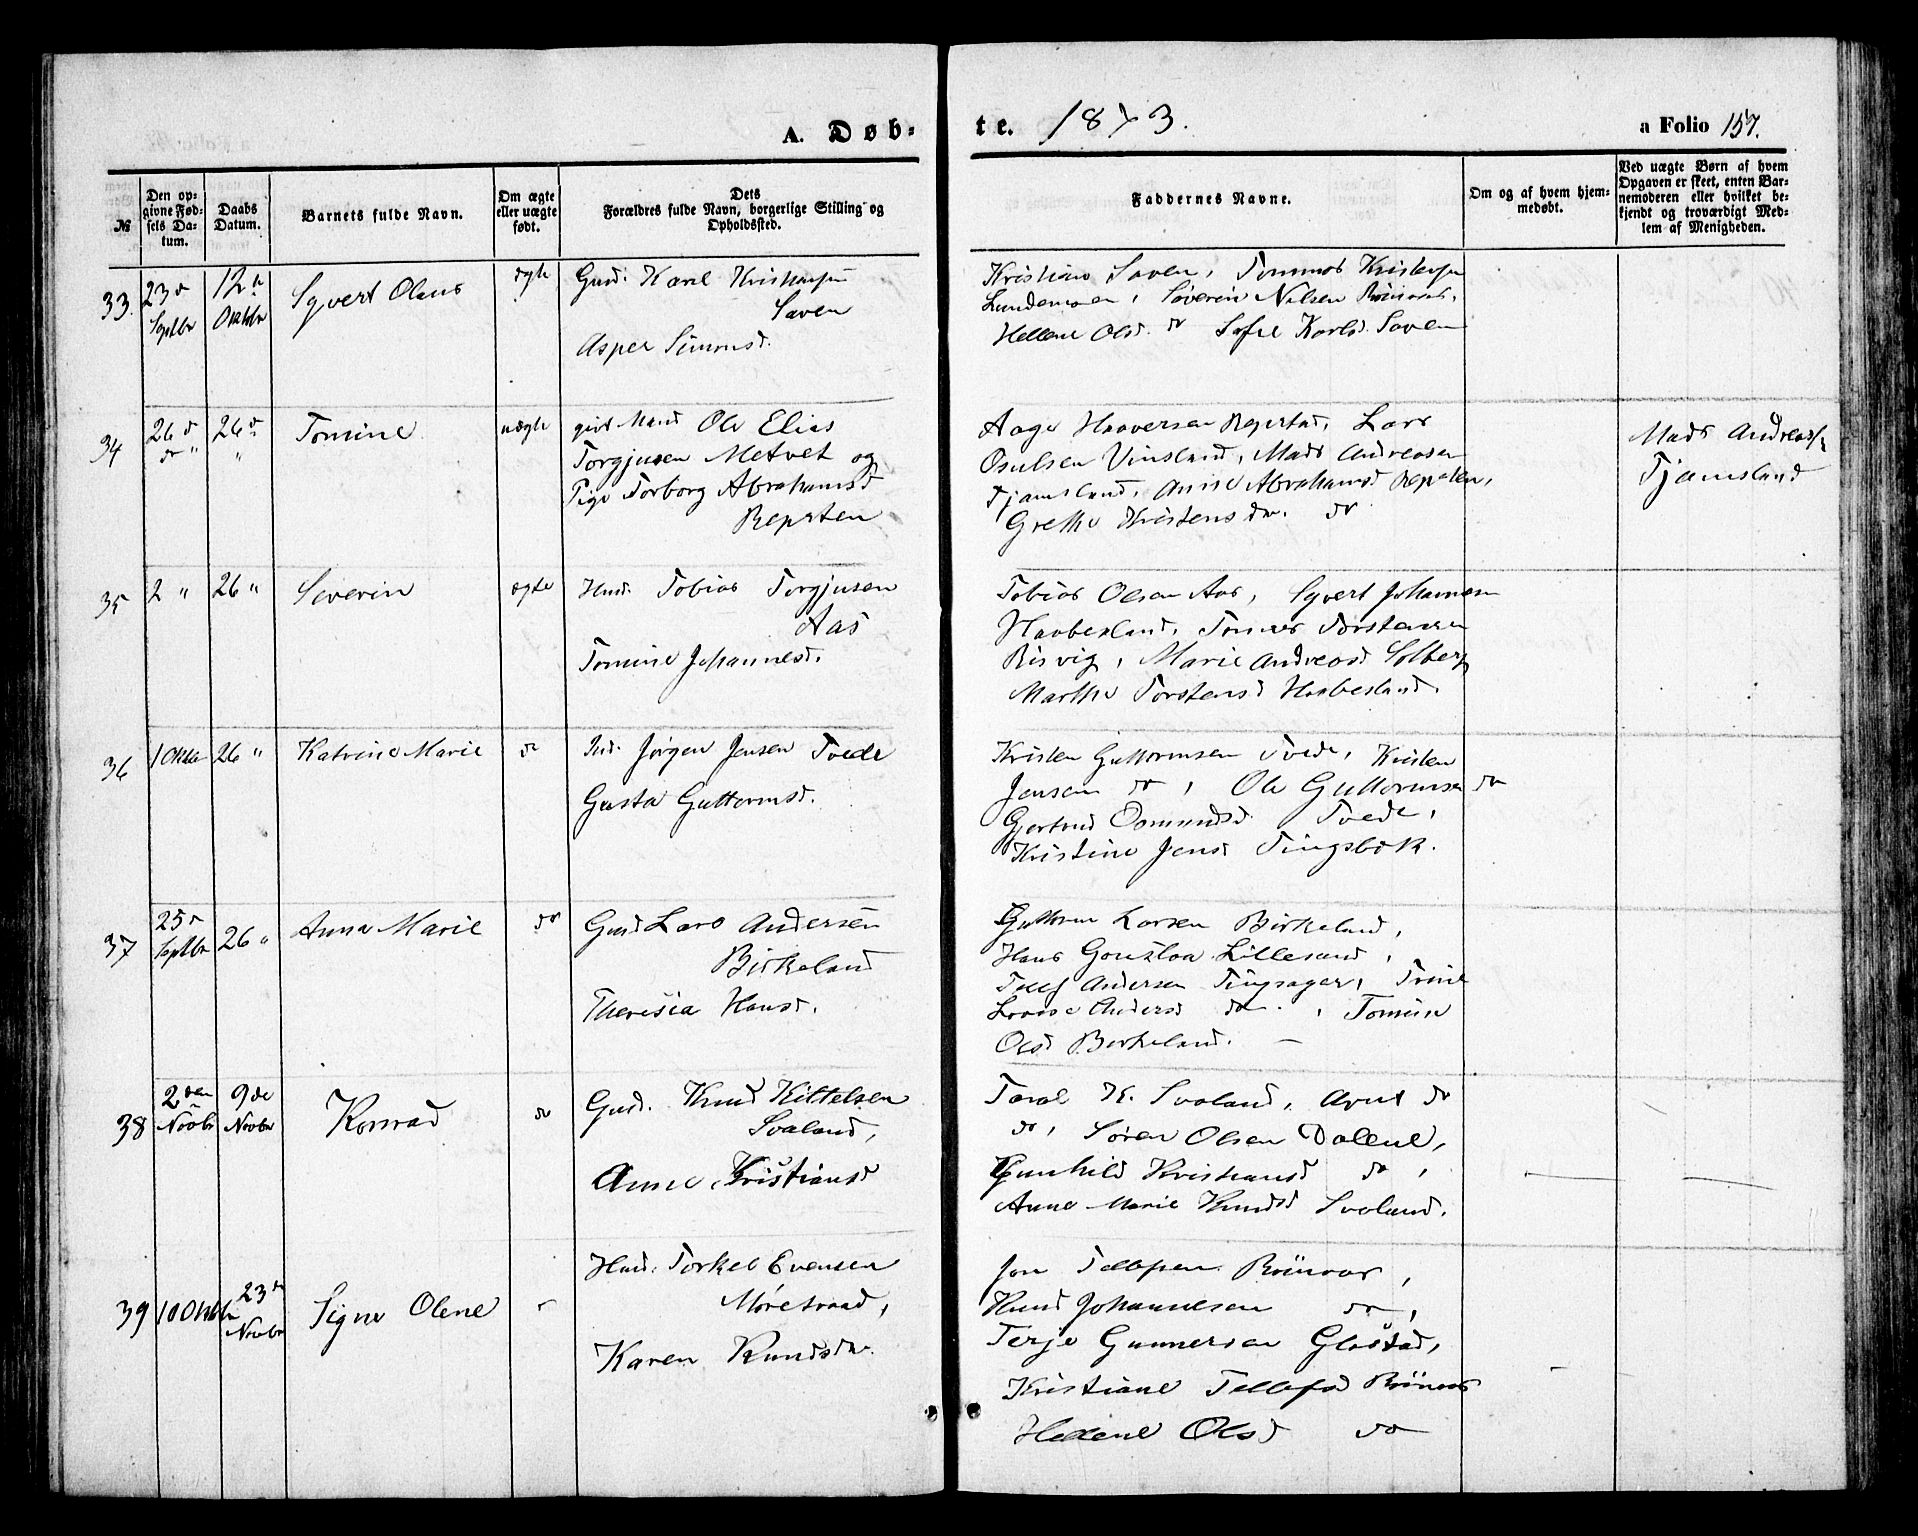 A. Døb-
te. 1873.
a Folio 157.
№
Den op-
givne Fød-
sels Da-
tum.
Daabs
Datum.
Barnets fulde Navn.
Om ægte
eller uægte
født.
Dets
Forældres fulde Navn, borgerlige Stilling og
Opholdssted.
Faddernes Navne.
Om og af hvem hjem-
medøbt.
Ved uægte Børn af hvem
Opgaven er skeet, enten Bar-
nemoderen eller hvilket be-
kjendt og troværdigt Med-
lem af Menigheden.
33.
23d
Septbr
12te
Oktobr
Syvert Olaus
ægte
Gmd. Karel Kristiansen
Saven
Asper Simonsd.
Kristian Saven, Tommas Kristensen
Lundemoen, Søveren Nilsen Rönaas,
Hellene Olsd. do Sofie Karlsd. Saven
34
26d
do "
26d
"
Tomine
uægte
gift Mand Ole Elias
Torgjusen Metvet og
Pige Torborg Abrahamsd
Repsten
Aage Haaversen Repstad, Lars
Osulsen Vinsland, Mads Andreasen
Tjamsland, Anne Abrahamsd Repsten,
Grethe Kristensdr. do
Mads Andreass.
Tjamsland
35
2 "
26 "
Severin
ægte
Husm. Tobias Torgjusen
Aas
Tomine Johannesd.
Tobias Olsen Aas, Syvert Johannesen
Haabesland, Tomas Torstensen
Risvig, Marie Andreasd Solberg
Marthe Torstensd Haabesland.
36
1 Oktbr
26 "
Katrine Marie
do
Ind. Jørgen Jensen Tvede
Gusta Guttormsd.
Kristen Guttormsen Tvede, Kristen
Jensen do, Ole Guttormsen do
Gjertrud Osmundsd Tvede,
Kristine Jensd Tingsbæk.
37
25d
Septbr
26 "
Anna Marie
do
Gmd Lars Andersen
Birkeland
Theresia Hansd.
Guttorm Larsen Birkeland,
Hans Lillesand,
Tellef Andersen Tingsager, Trine
Lovise Andersd do. , Tomine
Olsd Berkeland. —
38
2den
Novbr
9de
Novbr
Konrad
do
Gmd. Knud Kittelsen
Svaland,
Anne Kristiansd
Taral K. Svaland, Arnt do
do, Søren Olsen Dalene,
Gunhild Kristiansd do,
Anne Marie Knudsd Svaland.
39
10 Oktbr
23de
Novbr
Signe Olene
Husm. Torkel Evensen
Møretraad,
Karen Knudsdr.
Jon Tellefsen Rönaas,
Knud Johannesen do,
Terje Gunnersen Glastad,
Kristiane Tellefsd Rönaas
Hellene Olsd do